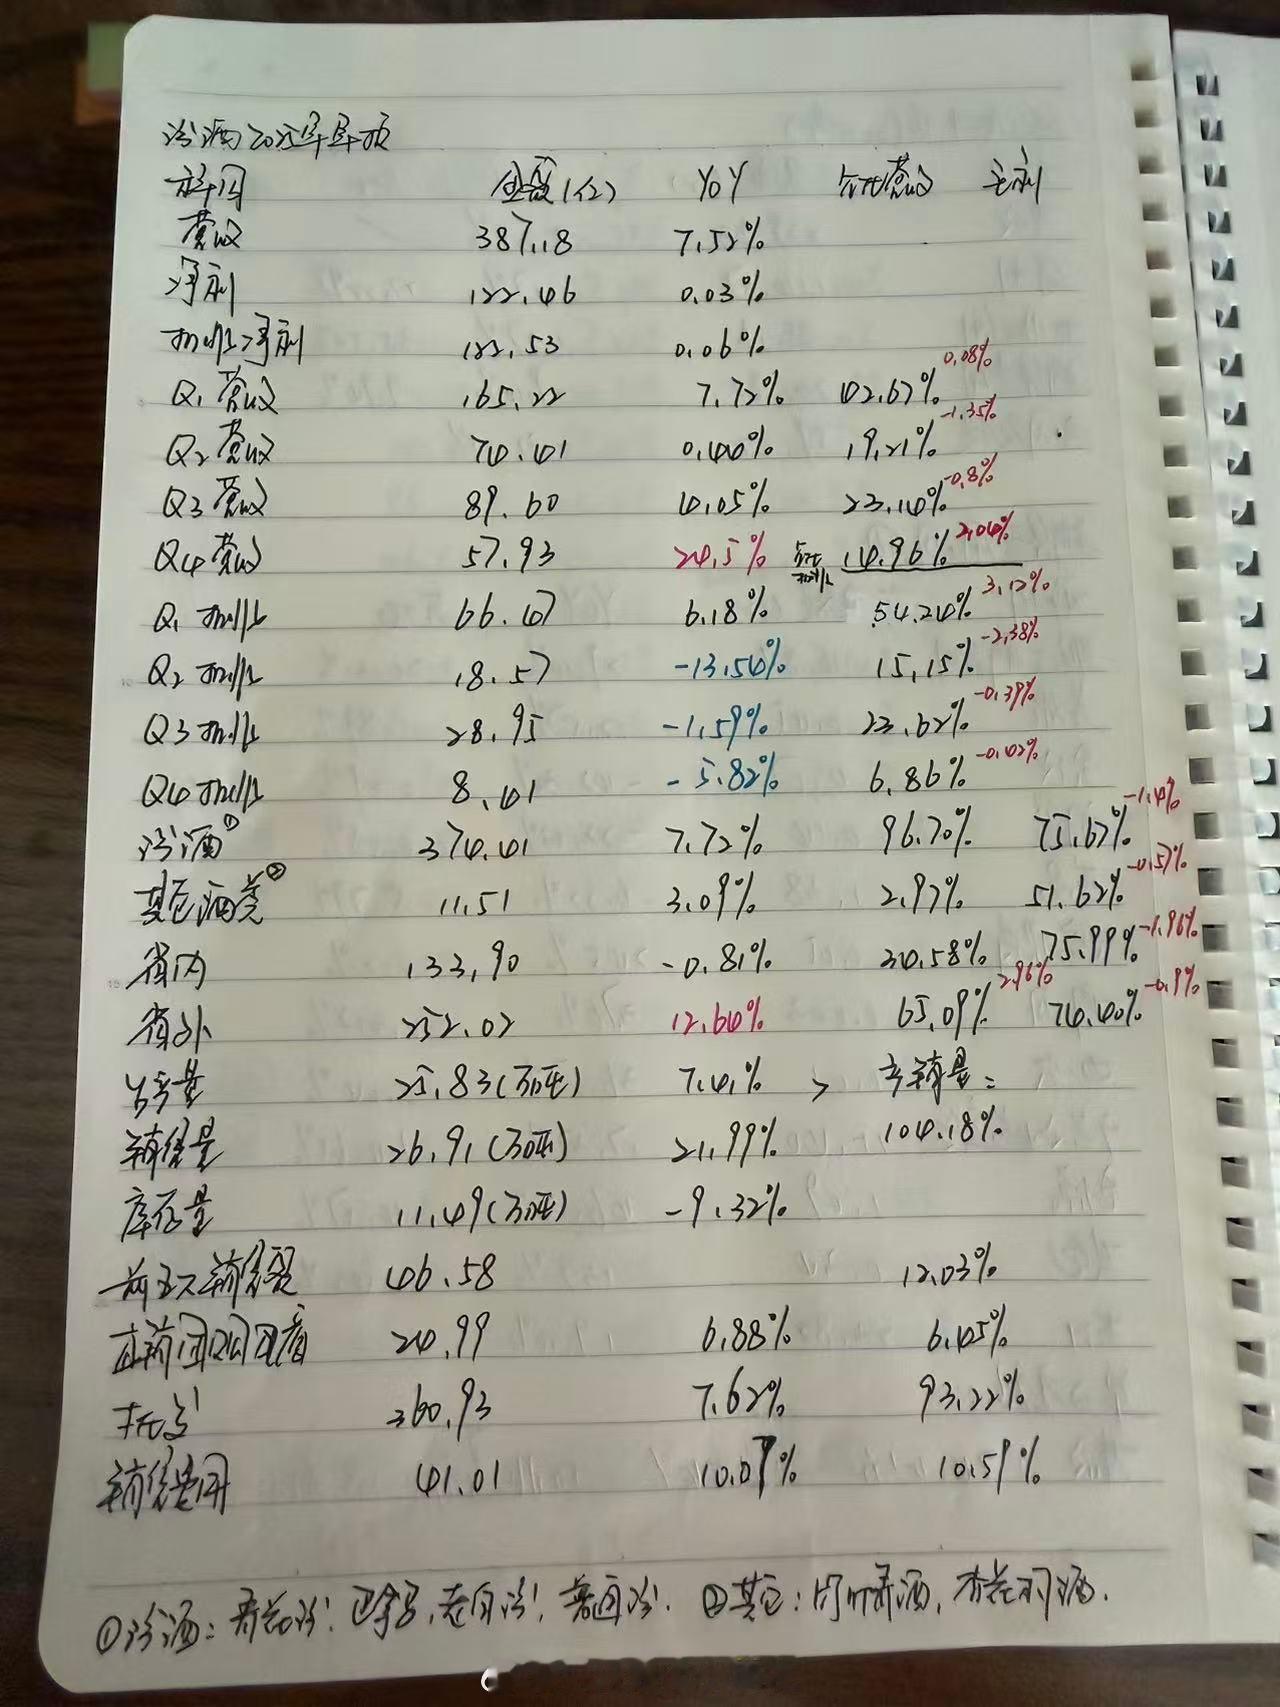 汾酒2025年年报
科目 金额(亿) YoY 占比营收 毛利
营收 387.18 7.52%
净利 122.46 0.03%
扣非净利 122.53 0.06%
Q1营收 165.22 7.72% 42.67% 0.08%
Q2营收 74.41 0.44% 19.21% -1.35%
Q3营收 89.60 4.05% 23.14% -0.8%
Q4营收 57.93 24.5% 占比扣非 14.96% 2.04%
Q1扣非 66.47 6.18% 54.24% 3.12%
Q2扣非 18.57 -13.54% 15.15% -2.38%
Q3扣非 28.95 -1.59% 23.62% -0.39%
Q4扣非 8.41 -5.82% 6.86% -0.42%
汾酒① 374.41 7.72% 96.70% 75.67% -1.4%
其它酒类② 11.51 3.09% 2.97% 51.62% -0.57%
省内 133.90 -0.81% 34.58% 75.99% -1.96%
省外 252.02 12.64% 65.09% 2.96% 74.40% -0.9%
生产量 25.83(万吨) 7.41% > 产销量:
销售量 26.91(万吨) 21.99% 104.18%
库存量 11.49(万吨) -9.32%
前五大销售额 46.58 12.03%
直销团购电商 24.99 6.88% 6.45%
批发 360.93 7.62% 93.22%
销售费用 41.01 10.09% 10.59%
①汾酒:青花汾,巴拿马,老白汾,普通汾. ②其它:竹叶青酒,杏花村酒.